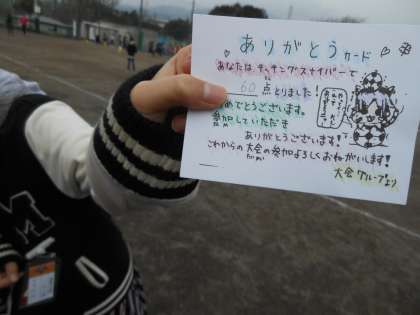 ありがとうカード
あなたは キッキングスナイパーで
60 点とりました!
おめでとうございます。
参加していただき
ありがとうございます!
これからの大会の参加よろしくおねがいします!
大会グループより
M